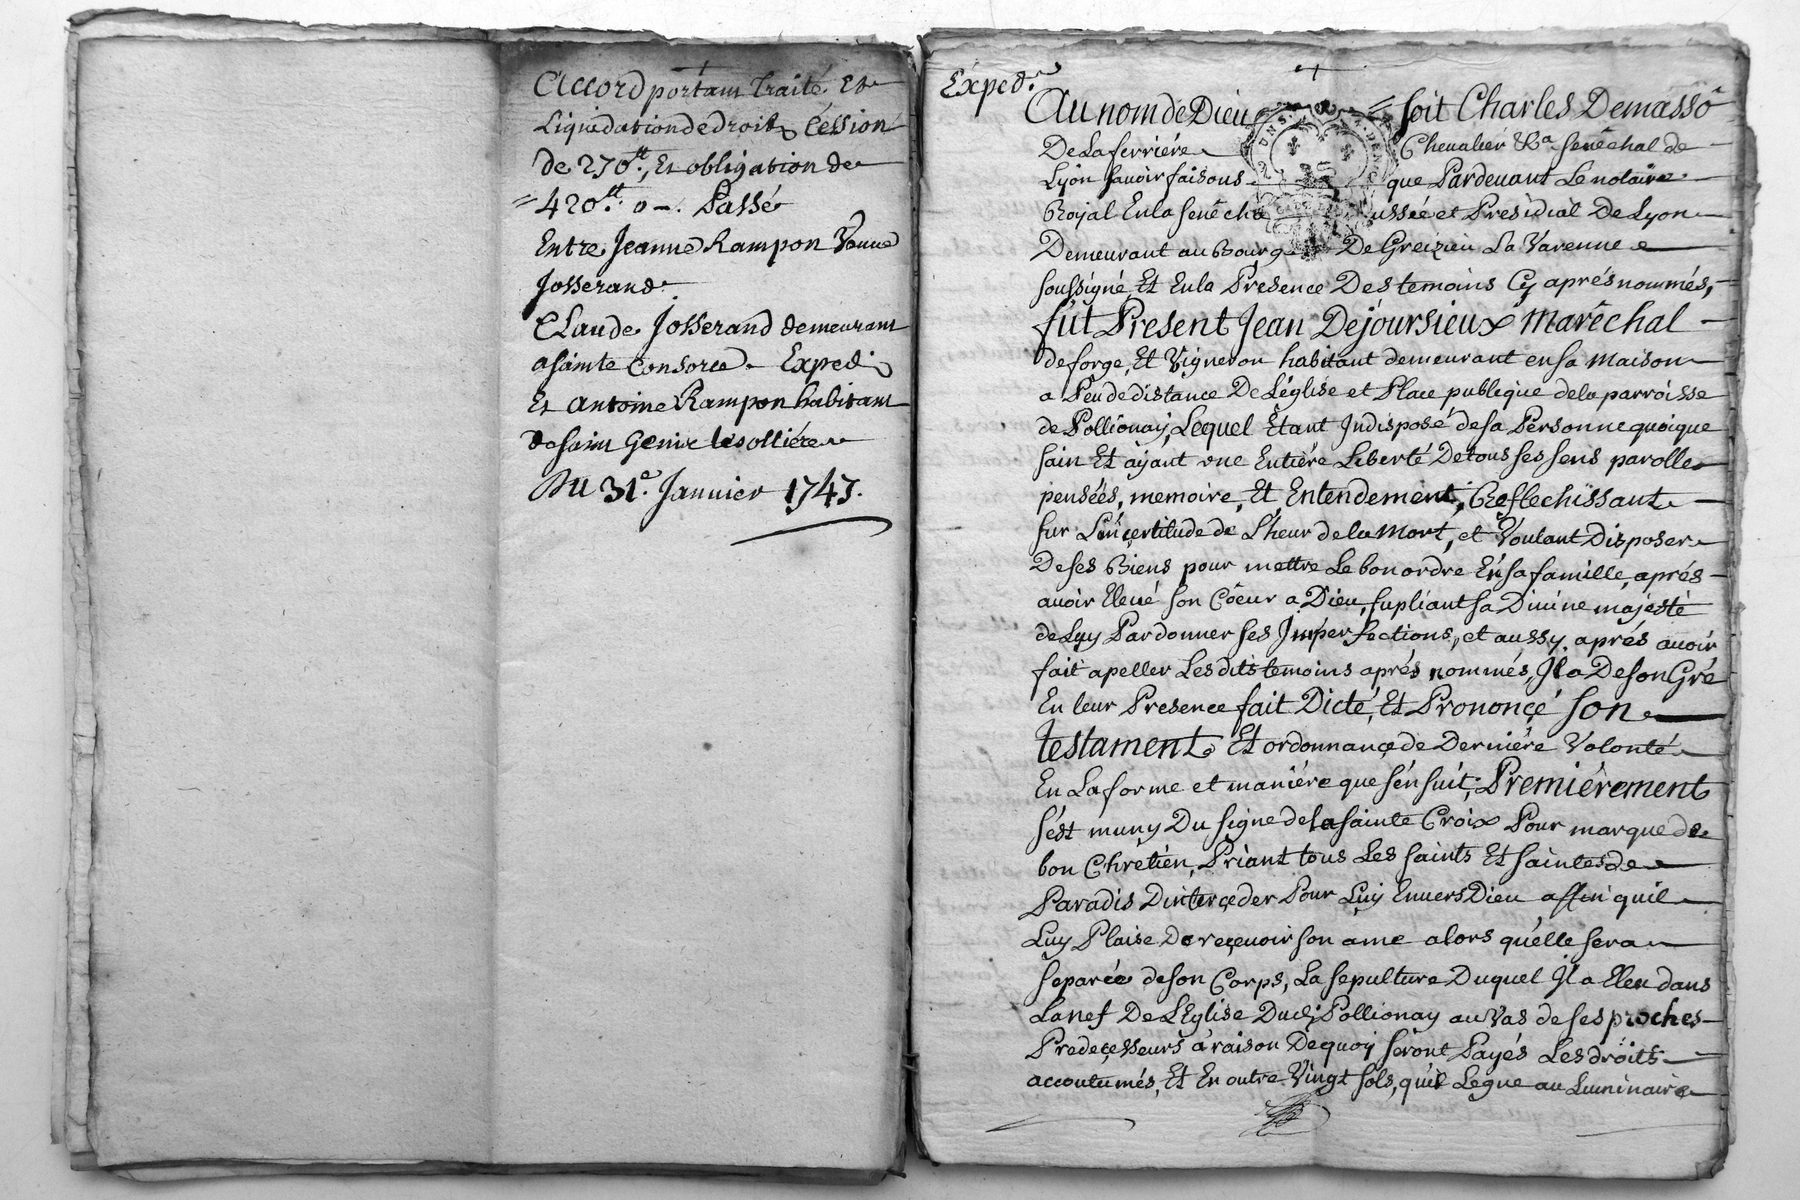 Accord portant Traité, Et
Liquidation de droits, Cession
de 270tt., Et obligation de
420tt. 0 –. Passé
Entre Jeanne Rampon Veuve
Josserand.
Claude Josserand demeurant
a sainte Consorce. Exped.
Et antoine Rampon habitant
de saint Genix les ollières
Du 31e. Janvier 1747.
Exped.
Au nom de Dieu soit Charles Demasso
De La ferriére Chevalier &a. senêchal de
Lyon sçavoir faisons que Pardevant Le notaire
Royal En la senêchaussée et Presidial De Lyon
Demeurant au Bourg De Greizieu La Varenne
soussigné, Et En la Presence Des temoins Cy aprés nommés,
fut Present Jean Dejoursieux marêchal
de forge, Et Vigneron habitant demeurant en sa maison
a Peu de distance De L'église et Place publique de la parroisse
de Pollionay, Lequel Etant Indisposé de sa Personne quoique
sain Et ayant une Entiére Liberté De tous ses sens parolle
pensées, memoire, Et Entendement, Reflechissant
sur L'incertitude de L'heur de la mort, et Voulant Disposer
De ses Biens pour mettre Le bon ordre En sa famille, aprés
avoir Elevé son Côeur a Dieu, supliant sa Divine majesté
de Luy Pardonner ses Imperfections, et aussy aprés avoir
fait apeller Les dits temoins aprés nommés, Il a De son Gré
En leur Presence fait Dicté, Et Prononçé son
testament Et ordonnançe de Derniére Volonté
En La forme et maniére que s'ensuit, Premiérement
s'est muny Du signe de la sainte Croix Pour marque de
bon Chrêtien, Priant tous Les saints Et saintes de
Paradis D'interçeder Pour Luy Envers Dieu affin quil
Luy Plaise De reçevoir son ame alors qu'elle sera
separée de son Corps, La sepulture Duquel Il a Eleu dans
La nef De L'Eglise Dudt. Pollionay au Vas de ses proches
Predeçesseurs à raison De quoy seront Payés Les droits
accoutumés, Et En outre Vingt sols, qu'il Legue au Luminaire